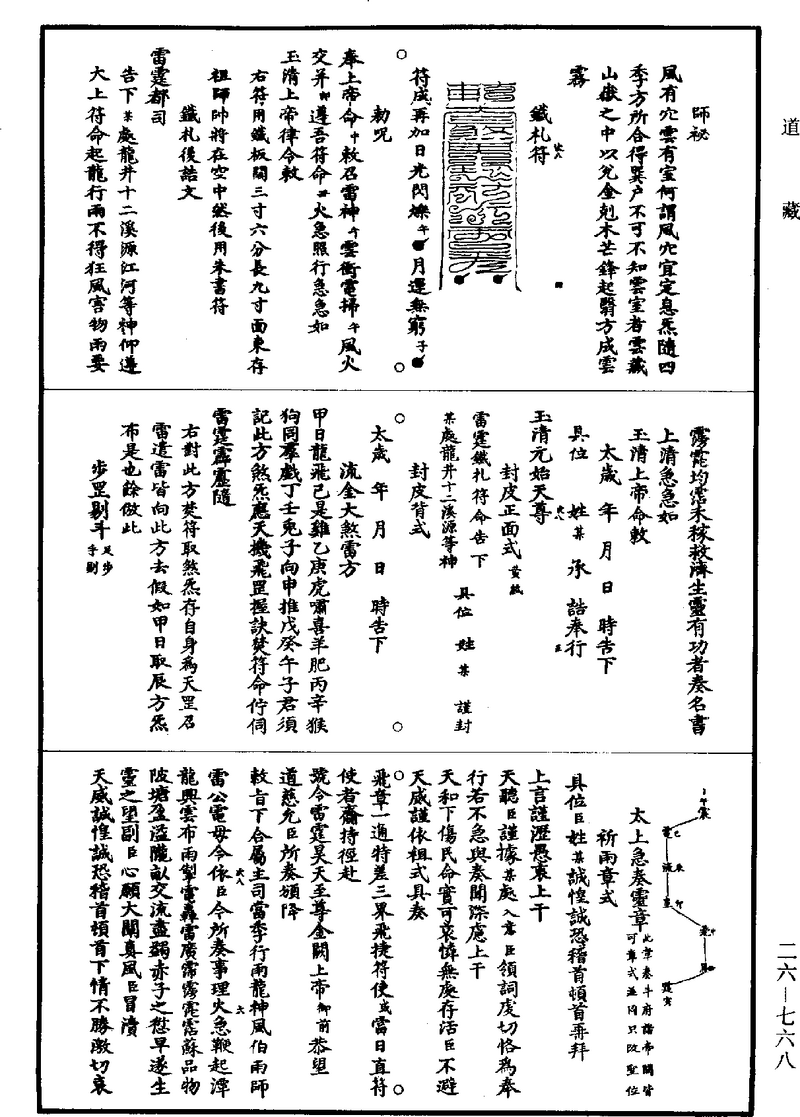 道藏
師祕
風有穴雲有室何謂風穴宜定息炁隨四
季方所合得巽户不可不知雲室者雲藏
山嶽之中以兌金剋木芒鋒起翳方成雲
霧
鐵札符
符成再加日光閃爍午月運無窮子
勅呪
奉上帝命敕召雷神午雲衝電掃午風火
交并遵吾符命火急照行急急如
玉清上帝律令敕
右符用鐵板闊三寸六分長九寸面東存
祖師帥將在空中然後用朱書符
鐵札後誥文
雷霆都司
告下某處龍井十二溪源江河等神仰遵
大上符命起龍行雨不得狂風害物雨要
霶霈均霑禾稼救濟生靈有功者奏名書
上清急急如
玉清上帝命敕
太歲 年 月 日 時告下
具位 姓某 承誥奉行
玉清元始天尊
封皮正面式黃紙
雷霆鐵札符命告下
某處龍井十二溪源等神 具位 姓某 謹封
封皮背式
太歲 年 月 日 時告下
流金大煞雷方
甲日龍飛己是雞乙庚虎嘯喜羊肥丙辛猴
狗同羣戲丁壬兎子向申推戊癸午子君須
記此方煞炁應天機飛罡握訣焚符命佇伺
雷霆霹靂隨
右對此方焚符取煞炁存自身爲天罡召
雷遣雷皆向此方去假如甲日取辰方炁
布是也餘倣此
步罡剔斗足步手剔
太上急奏靈章此章奏斗府諸帝闕皆可章式並同只改聖位
祈雨章式
具位臣姓某誠惶誠恐稽首頓首再拜
上言謹瀝愚衷上干
天聽臣謹據某處入意臣領詞虔切恪爲奉
行若不急與奏聞深慮上干
天和下傷民命實可哀憐無處存活臣不避
天威謹依祖式具奏
飛章一通特差三界飛捷符使或當日直符
使者齎持徑赴
號令雷霆昊天至尊金闕上帝御前恭望
道慈允臣所奏頒降
敕旨下合屬主司當季行雨龍神風伯雨師
雷公電母令依臣今所奏事理火急鞭起潭
龍興雲布雨掣電轟雷廣霈霶霑蘇品物
陂塘盈溢隴畝交流盡蠲赤子之愆早遂生
靈之望副臣心願大闡真風臣冒瀆
天威誠惶誠恐稽首頓首下情不勝激切哀
二六—七六八